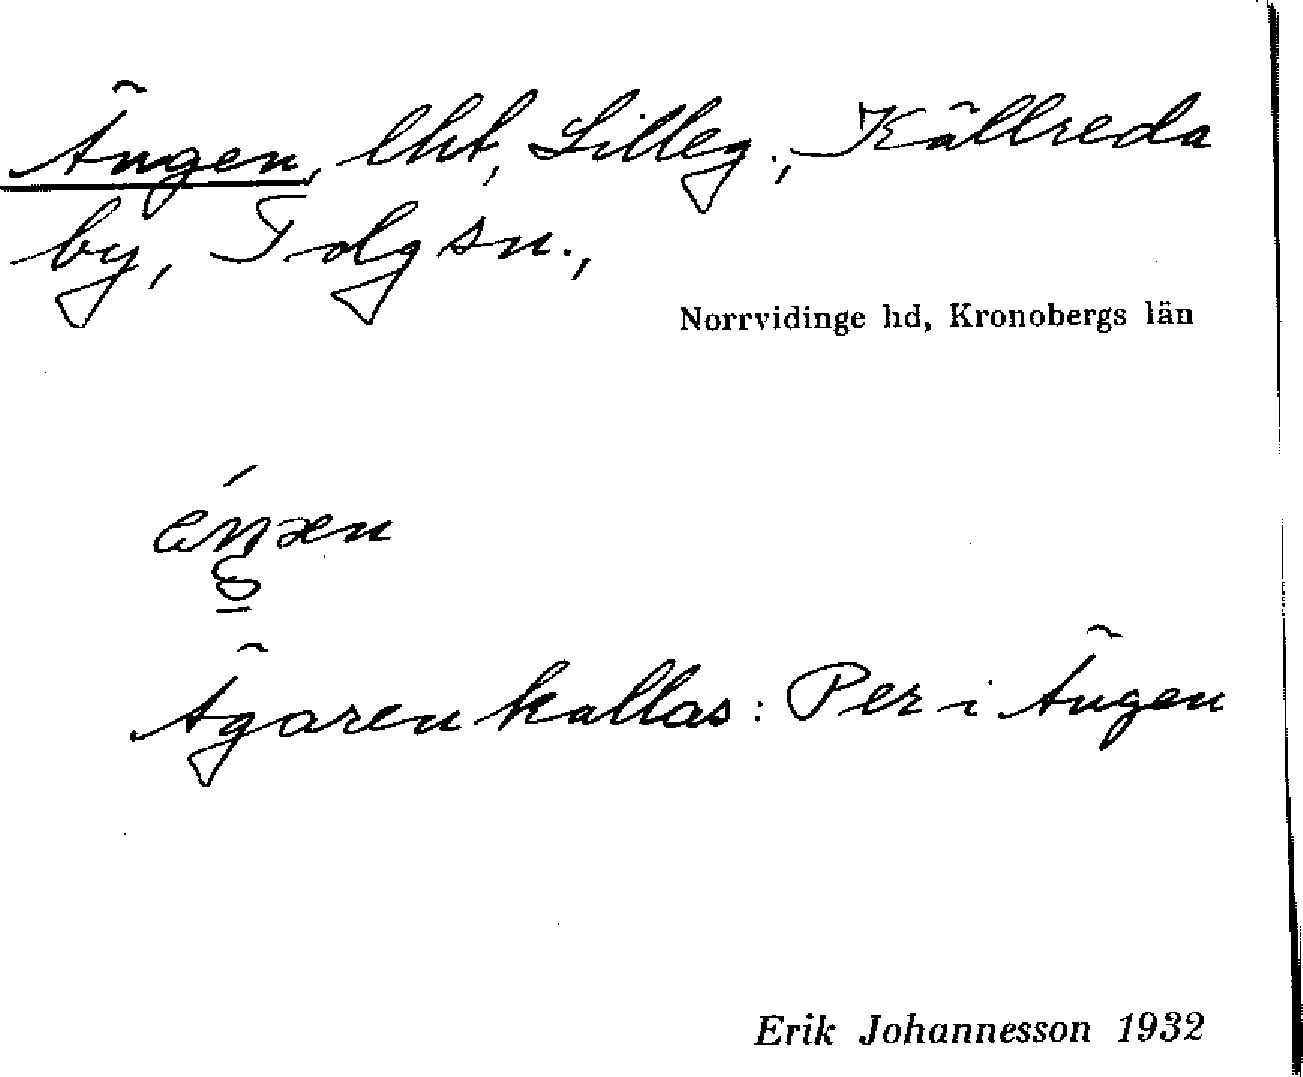 Ängen, lht, Lilleg., Källreda
by, Tolg sn.,
Norrvidinge hd, Kronobergs län
Ägaren kallas: Per i Ängen
Erik Johannesson 1932